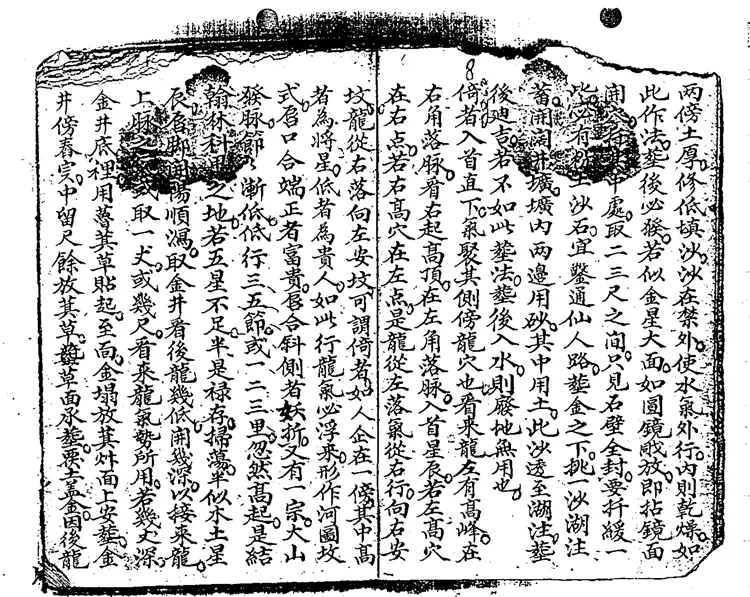 兩傍土厚修低填沙沙在禁外使水氣外行內則乾燥如
此作法葬後必發若似金星大面如圓鏡戲放即拈鏡面
開 中處取二三尺之间只見石壁全封要扦緩一
必有 土沙石宜鑿通仙人路葬金之下挑一沙湖注
蓄開闊井壙壙內兩邊用砂其中用土此沙透至湖注葬
後迪吉若不如此葬法葬後入水則廢地無用也
倚者入首直下氣聚其側傍龍穴也看來龍左有高峰在
右角落脉看右起高頂在左角落脉入首星辰若左高穴
在右点若右高穴在左点是龍從左落氣從右行向右安
坟龍從右落向左安坟可謂倚者如人企在一傍其中高
者為將星低者為貴人如此行龍氣必浮來形作河圖坟
式唇口合端正者富貴唇合斜側者妖折又有一宗大山
發脉節々漸低低行三五節或一二三里忽然高起是結
翰林科甲之地若五星不足半是禄存掃蕩半似木土星
辰唇脚開陽順瀉取金井看後龍幾低開幾深以接來龍
上脉之 或取一丈或幾尺看來龍氣勢所用若幾丈深
金井底裡用薯萁草貼起至面金塌放萁艸面上安葬金
井傍舂完中留尺餘放萁草 草面承葬要土盖金因後龍